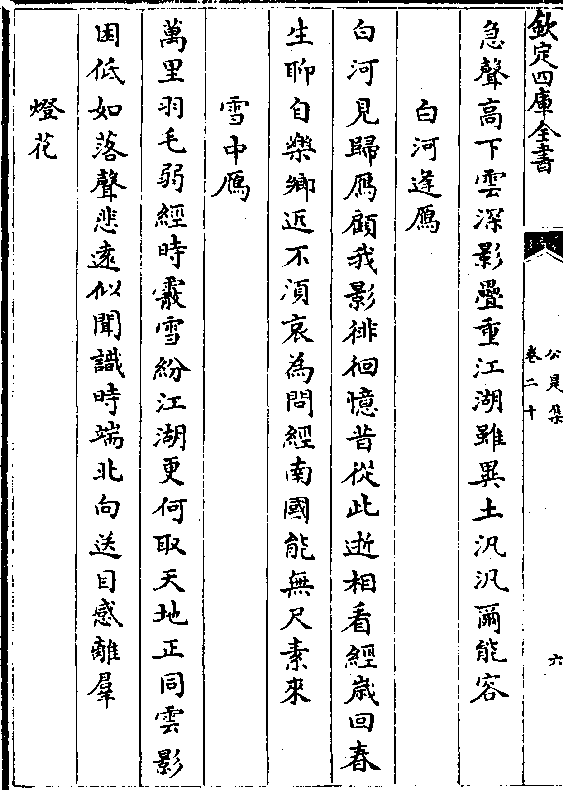 欽定四庫全書
公是集
卷二十
六
急聲高下雲深影疊重江湖雖異土汎汎爾能容
白河逢鴈
白河見歸鴈顧我影徘徊憶昔從此逝相看經歲回春
生聊自樂鄉近不須哀為問經南國能無尺素來
雪中鴈
萬里羽毛弱經時霰雪紛江湖更何取天地正同雲影
困低如落聲悲遠似聞識時端北向送目感離羣
燈花